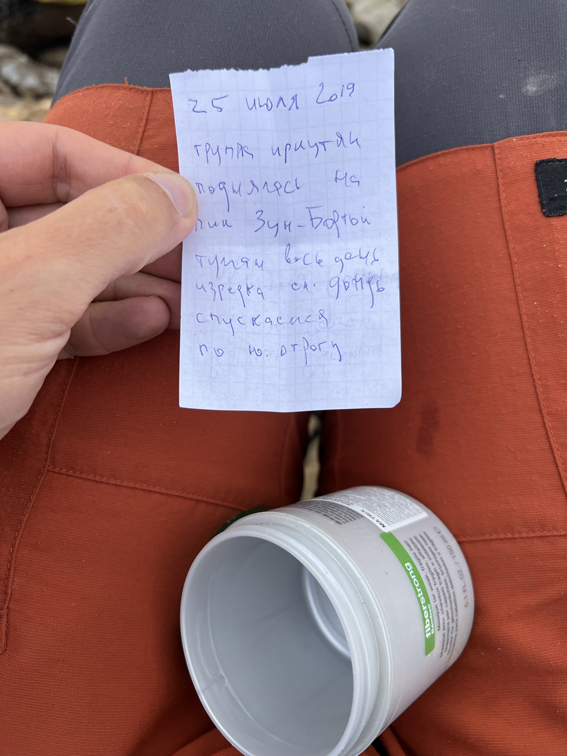 25 июля 2019
группа иркутян
поднялась на
пик Зун-Бортой
туман весь день
изредка сл. дождь
спускаемся
по ю. отрогу
MATRIX
fiberstrong
5.1 FL.OZ / 150 ml